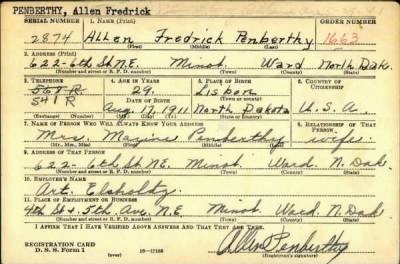 PENBERTHY, Allen Fredrick
SERIAL NUMBER 1. NAME (Print) ORDER NUMBER
2874 Allen Fredrick Penberthy 1663
(First) (Middle) (Last)
2. ADDRESS (Print)
622-6th St N.E. Minot Ward North Dak.
(Number and street or R. F. D. number) (Town) (County) (State)
3. TELEPHONE 4. AGE IN YEARS 5. PLACE OF BIRTH 6. COUNTRY OF CITIZENSHIP
568-R 29 Lisbon
541 R DATE OF BIRTH (Town or county)
Aug. 17, 1911 North Dakota U.S.A.
(Mo.) (Day) (Yr.) (State or country)
7. NAME OF PERSON WHO WILL ALWAYS KNOW YOUR ADDRESS 8. RELATIONSHIP OF THAT PERSON
Mrs. Penberthy wife
(Mr., Mrs., Miss) (First) (Middle) (Last)
9. ADDRESS OF THAT PERSON
622-6th St NE. Minot Ward. N. Dak
(Number and street or R. F. D. number) (Town) (County) (State)
10. EMPLOYER'S NAME
Art. Elsholtz
11. PLACE OF EMPLOYMENT OR BUSINESS
4th St & 5th Ave. N.E. Minot Ward N. Dak
(Number and street or R. F. D. number) (Town) (County) (State)
I AFFIRM THAT I HAVE VERIFIED ABOVE ANSWERS AND THAT THEY ARE TRUE.
REGISTRATION CARD
D. S. S. Form 1 16-17105 Allen Penberthy
(Registrant's signature)